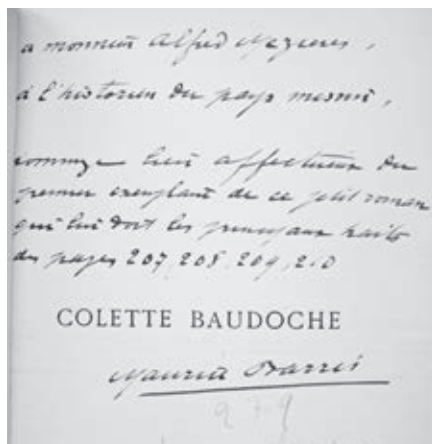 à monsieur Alfred Mezieres,
à l'historien du pays messin,
hommage bien affectueux du
premier exemplaire de ce petit roman
qui lui doit les principaux traits
des pages 207, 208, 209, 210
COLETTE BAUDOCHE
Maurice Barrès
279